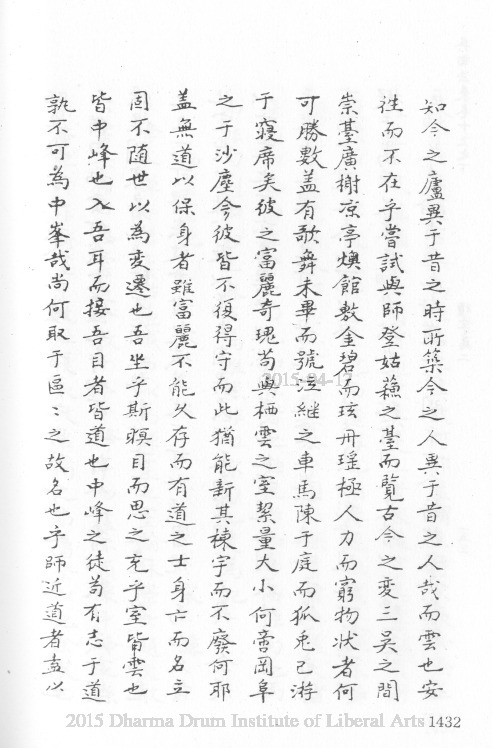 知今之廬異于昔之時所築今之人異于昔之人哉而雲也安
徃而不在乎嘗試與師登姑蘓之臺而覽古今之變三吳之間
崇基廣榭凉亭燠館敷金碧而琁丹瑤極人力而窮物状者何
可勝數盖有歌舞未畢而號泣継之車馬陳于庭而狐兎已游
于寢席矣彼之富麗竒瑰苟與栖雲之室絜量大小何啻岡阜
之于沙塵今彼皆不復得守而此猶能新其棟宇而不廢何耶
盖無道以保身者雖富麗不能久存而有道之士身亡而名立
固不随世以為変遷也吾坐乎斯瞑目而思之充乎室皆雲也
皆中峰也入吾耳而接吾目者皆道也中峰之徒苟有志于道
孰不可為中峯哉尚何取于區〻之故名也乎師近道者盍以
2015-04-17
2015 Dharma Drum Institute of Liberal Arts 1432